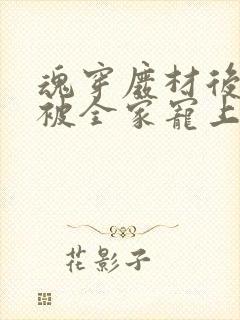 魂穿廢材後
被全家寵上
花影子